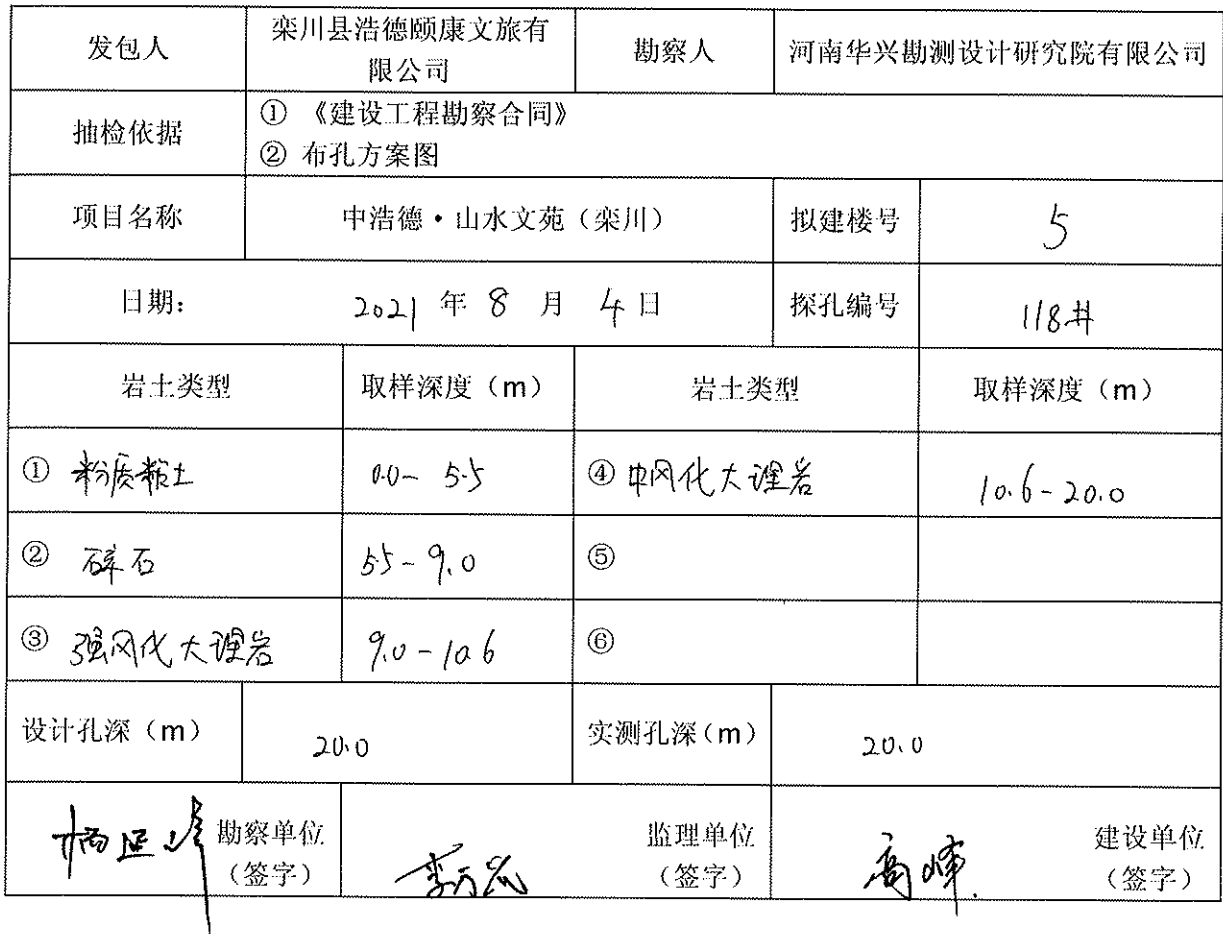 发包人
栾川县浩德颐康文旅有
限公司
勘察人
河南华兴勘测设计研究院有限公司
抽检依据
① 《建设工程勘察合同》
② 布孔方案图
项目名称
中浩德·山水文苑（栾川）
拟建楼号
5
日期： 2021 年 8 月 4 日
探孔编号
118#
岩土类型
取样深度（m）
岩土类型
取样深度（m）
① 粉质粘土
0.0- 5.5
④ 中风化大理岩
10.6-20.0
② 碎石
5.5-9.0
⑤
③ 强风化大理岩
9.0-10.6
⑥
设计孔深（m）
20.0
实测孔深（m）
20.0
勘察单位
（签字）
监理单位
（签字）
高峰
建设单位
（签字）